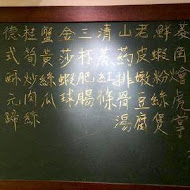 菱角燴虎掌
鮮蝦粉絲煲
老皮嫩豆腐
山藥排骨湯
清蒸紅條
三杯肥腸
金莎蝦球
蟹黃絲瓜
桂筍炒肉絲
德式元蹄